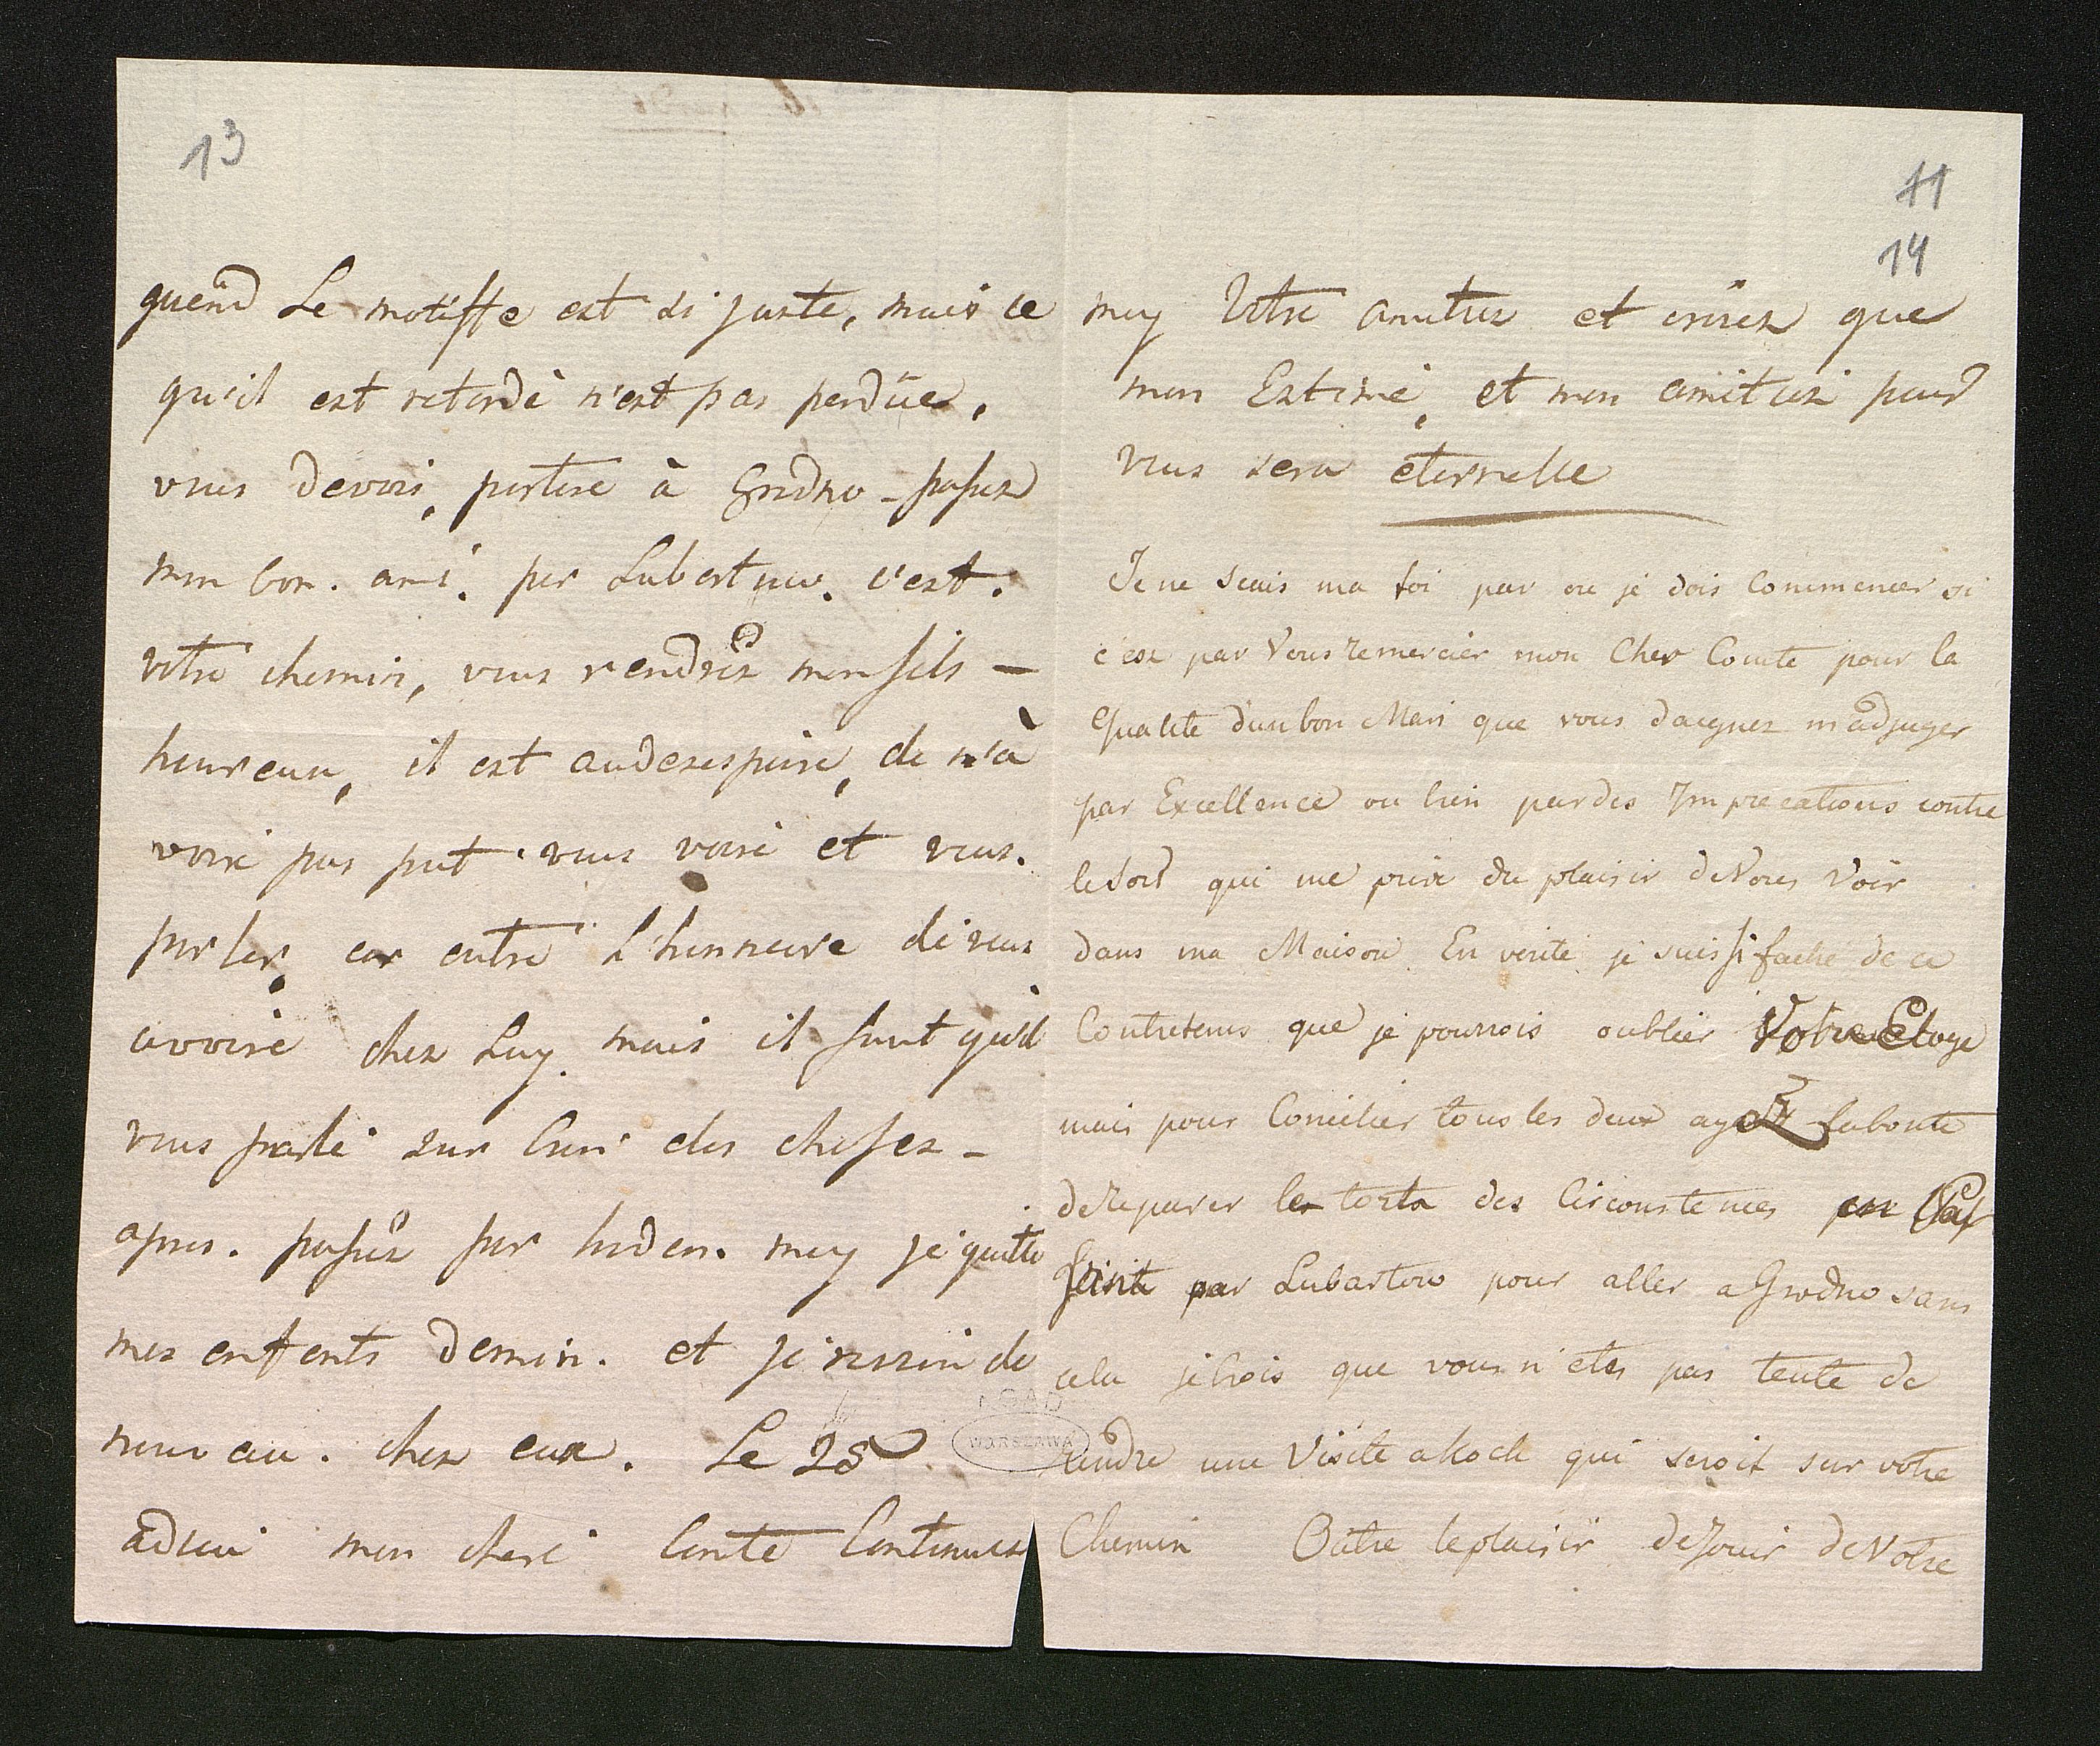 13
quend Le motiffe est si juste, mais ce
qu'il est retardé n'est pas perdüe,
vous devois, partire à Grodno - passez
mon bon. ami. par Lubartow. c'est.
votre chemin, vous rendrez mon fils -
heureux, il est audesespoire, de n'à
voire pas put vous voire et vous.
parler, car outre L'honneure de vous
avoire chez Luy. mais il faut qu'il
vous parle sur bien des choses -
apres. passez par moy je quitte
mes enfents demin. et je revien de
nouveau. chez eux. Le 28
adieu mon chere Conte Continuez
11
14
moy Votre amitiez et croiez que
mon Estime, et mon amitiez pour
vous sera eternelle
Je ne scais ma foi par ou je dois Commencer si
c'est par Vous remercier mon Cher Comte pour la
Qualite d'un bon Mari que vous daignez m'adjuger
par Excellence ou bien par des Imprecations contre
le sort qui me prive du plaisir de Vous Voir
dans ma Maison En verité je suis si faché de ce
Contretems que je pourrois oublier Votre Eloge
mais pour Concilier tous les deux ayez la bonte
de reparer les torts des Circonstences
par Lubartow pour aller a Grodno sans
cela je crois que vous n'etes pas tenté de
rendre une Visite a Kock qui seroit sur votre
Chemin Outre le plaisir de Jouir de Votre
WARSZAWA